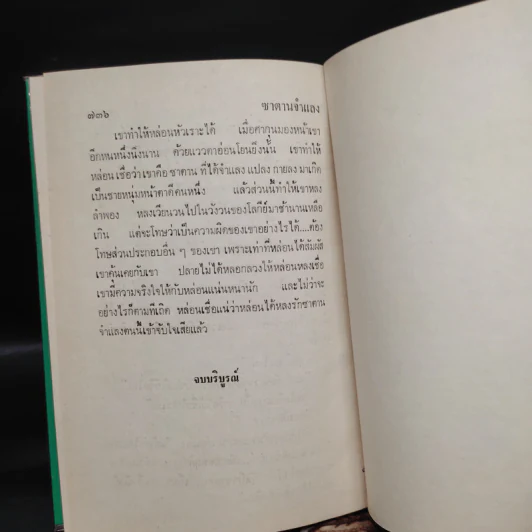 ๗๓๖ ซาตานจำแลง
เขาทำให้หล่อนหัวเราะได้ เมื่อศากุนมองหน้าเขา
อีกหนหนึ่งนิ่งนาน ด้วยแววตาอ่อนโยนยิ่งนั้น เขาทำให้
หล่อนเชื่อว่าเขาคือ ซาตาน ที่ได้จำแลง แปลง กายลง มาเกิด
เป็นชายหนุ่มหน้าตาดีคนหนึ่ง แล้วส่วนนี้ทำให้เขาหลง
ลำพอง หลงเวียนวนไปในวังวนของโลกีย์มาช้านานเหลือ
เกิน แต่จะโทษว่าเป็นความผิดของเขาอย่างไรได้....ต้อง
โทษส่วนประกอบอื่น ๆ ของเขา เพราะเท่าที่หล่อนได้สัมผัส
เขาคุ้นเคยกับเขา ปลายไม่ได้หลอกลวงให้หล่อนหลงเชื่อ
เขามีความจริงใจให้กับหล่อนแน่นหนานัก และไม่ว่าจะ
อย่างไรก็ตามทีเถิด หล่อนเชื่อแน่ว่าหล่อนได้หลงรักซาตาน
จำแลงคนนี้เข้าจับใจเสียแล้ว
จบบริบูรณ์